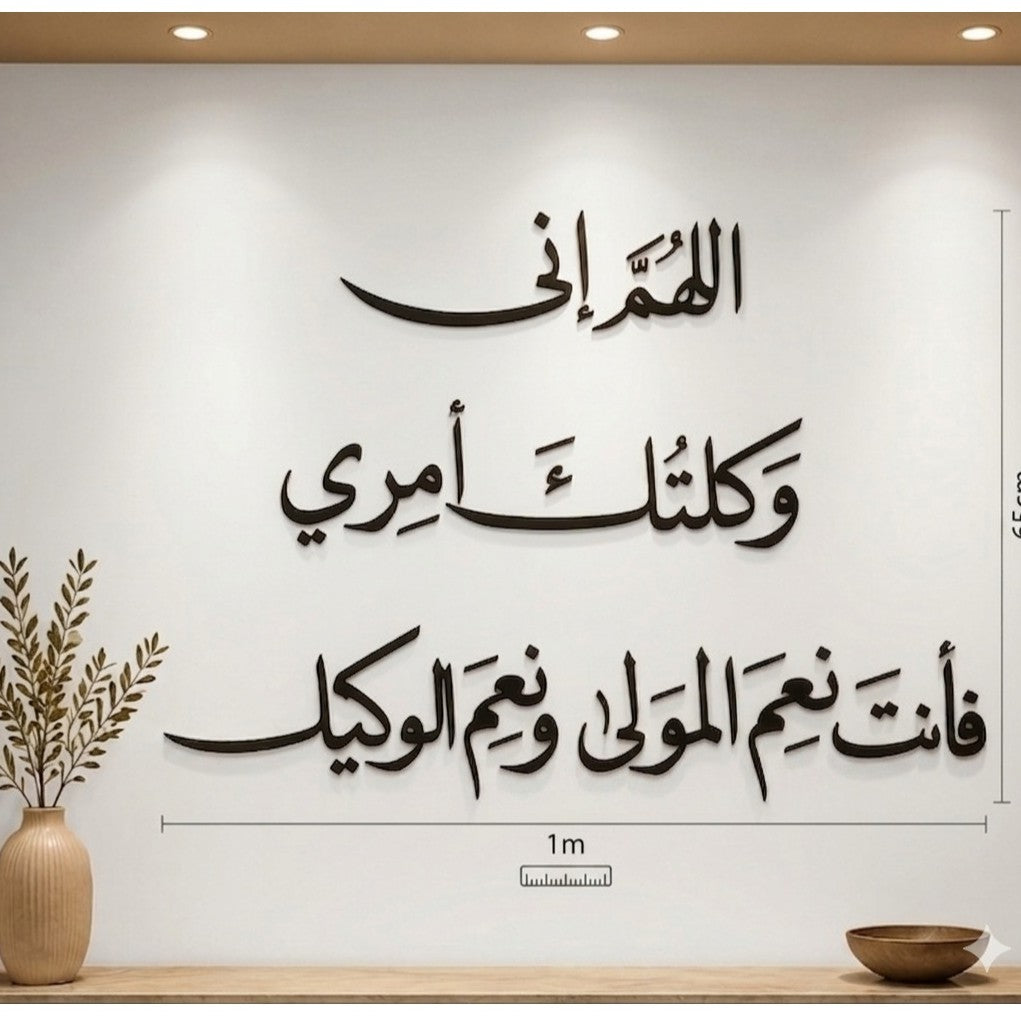 اللهُمَّ إنى
وَكلتُكَ أمِري
فأنتَ نعِمَ المَولىٰ ونعِمَ الوكيل
1m